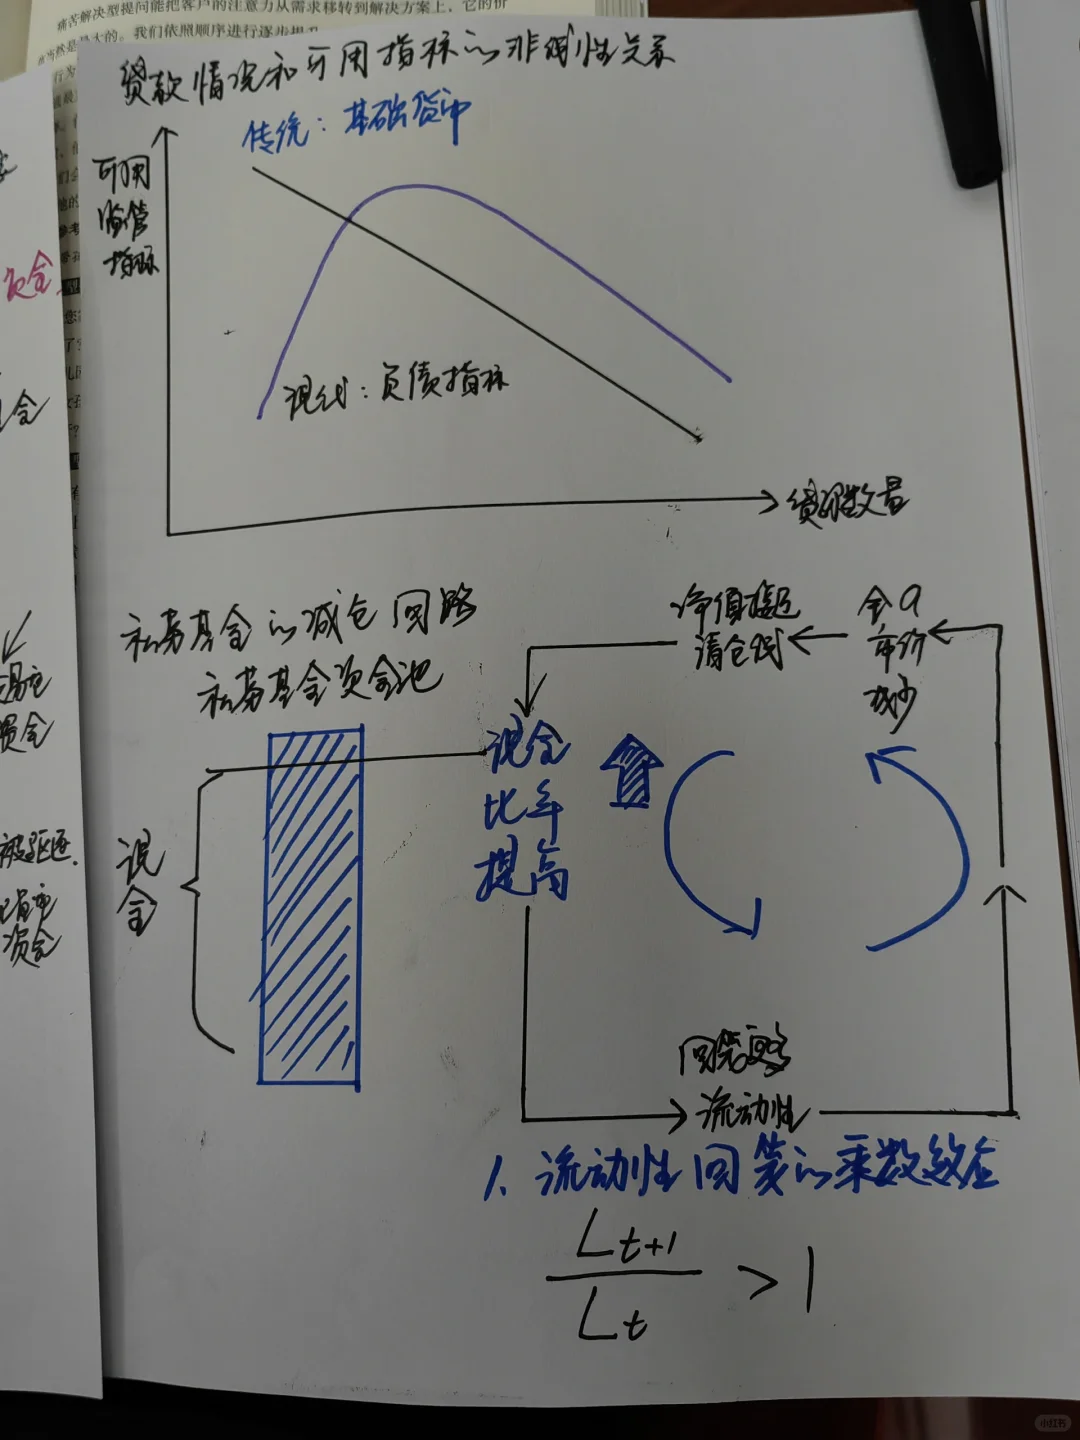 痛苦解决型提问能把客户的注意力从需求移转到解决方案上，它的价
当然是最大的。我们依照顺序进行逐步提升
贷款情况和可用指标的非线性关系
传统：基础货币
可用
监管
指标
现代：负债指标
贷款数量
私募基金的减仓回路
私募基金资金池
净值接近
清仓线
全A
市价
减少
现金
比率
提高
现
金
回笼
流动性
1、流动性回笼的乘数效应
Lt+1
Lt
> 1
资金
被驱逐.
资金
小红书